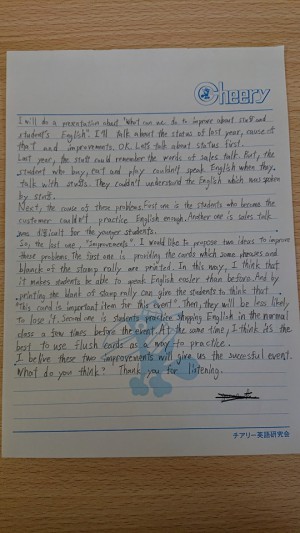 Cheery
I will do a presentation about "What can we do to improve about staff and
student's English". I'll talk about the status of last year, cause of
that and improvements. OK. Let's talk about status first.
Last year, the staff could remember the words of sales talk. But, the
student who buy, eat and play couldn't speak English when they
talk with staffs. They couldn't understand the English which was spoken
by staff.
Next, the cause of these problems. First one is the students who become the
customer couldn't practice English enough. Another one is sales talk
was difficult for the younger students.
In the last one, "Improvements". I would like to propose two ideas to improve
these problems. The first one is providing the cards which some phrases and
blanck of the stamp rally are printed. In this way, I think that
it makes students be able to speak English easier than before. And by
printing the blank of stamp rally, one give the students to think that
"This card is important item for this event". Then, they will be less likely
to lose it. Second one is students practice shopping English in the normal
class a few times before the event. At the same time, I think it's the
best to use flush cards as a way to practice.
I belive these two improvements will give us the succesful event.
What do you think? Thank you for listening.
チアリー英語研究会